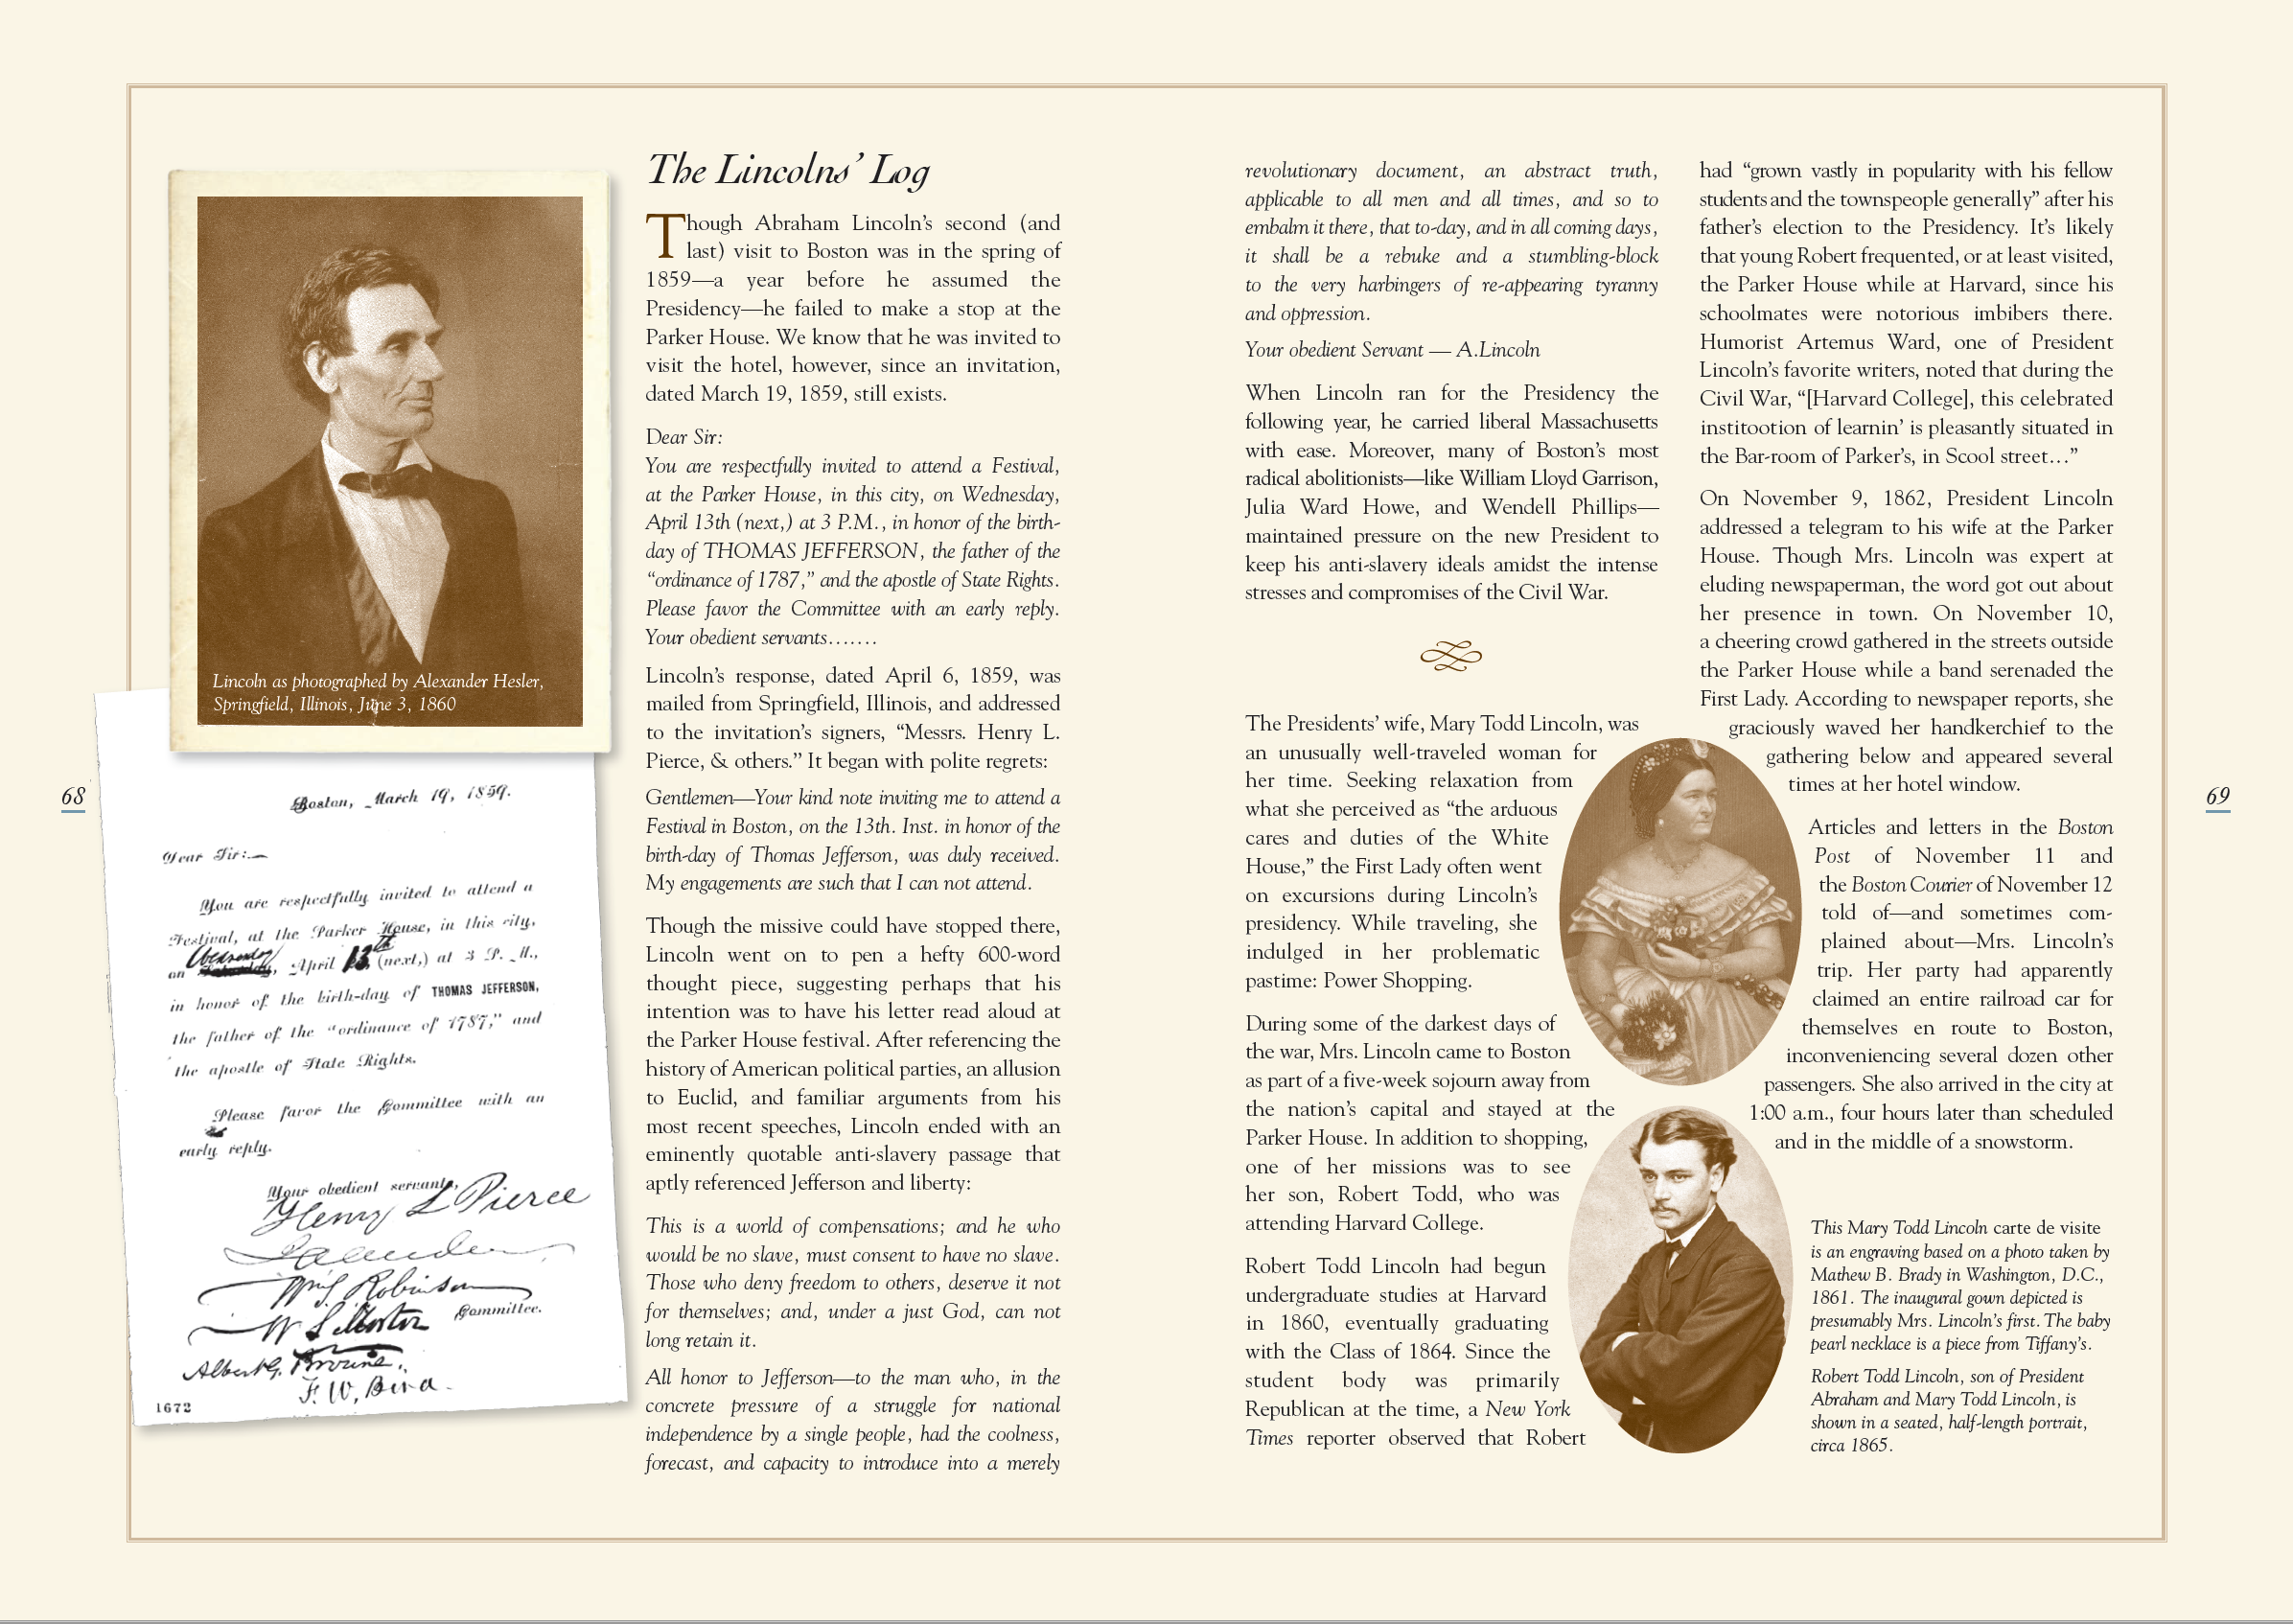 The Lincolns’ Log
Though Abraham Lincoln’s second (and
last) visit to Boston was in the spring of
1859—a year before he assumed the
Presidency—he failed to make a stop at the
Parker House. We know that he was invited to
visit the hotel, however, since an invitation,
dated March 19, 1859, still exists.
Dear Sir:
You are respectfully invited to attend a Festival,
at the Parker House, in this city, on Wednesday,
April 13th (next,) at 3 P.M., in honor of the birth-
day of THOMAS JEFFERSON, the father of the
“ordinance of 1787,” and the apostle of State Rights.
Please favor the Committee with an early reply.
Your obedient servants…….
Lincoln’s response, dated April 6, 1859, was
mailed from Springfield, Illinois, and addressed
to the invitation’s signers, “Messrs. Henry L.
Pierce, & others.” It began with polite regrets:
Gentlemen—Your kind note inviting me to attend a
Festival in Boston, on the 13th. Inst. in honor of the
birth-day of Thomas Jefferson, was duly received.
My engagements are such that I can not attend.
Though the missive could have stopped there,
Lincoln went on to pen a hefty 600-word
thought piece, suggesting perhaps that his
intention was to have his letter read aloud at
the Parker House festival. After referencing the
history of American political parties, an allusion
to Euclid, and familiar arguments from his
most recent speeches, Lincoln ended with an
eminently quotable anti-slavery passage that
aptly referenced Jefferson and liberty:
This is a world of compensations; and he who
would be no slave, must consent to have no slave.
Those who deny freedom to others, deserve it not
for themselves; and, under a just God, can not
long retain it.
All honor to Jefferson—to the man who, in the
concrete pressure of a struggle for national
independence by a single people, had the coolness,
forecast, and capacity to introduce into a merely
Lincoln as photographed by Alexander Hesler,
Springfield, Illinois, June 3, 1860
68
Boston, March 19, 1859.
Dear Sir:—
You are respectfully invited to attend a
Festival, at the Parker House, in this city,
Wednesday 13th
on Saturday, April (next,) at 3 P. M.,
in honor of the birth-day of THOMAS JEFFERSON,
the father of the “ordinance of 1787,” and
the apostle of State Rights.
Please favor the Committee with an
early reply.
Your obedient servants,
Henry L Pierce
Wm S Robinson
Committee.
Albert G. Browne.
F. W. Bird.
1672
revolutionary document, an abstract truth,
applicable to all men and all times, and so to
embalm it there, that to-day, and in all coming days,
it shall be a rebuke and a stumbling-block
to the very harbingers of re-appearing tyranny
and oppression.
Your obedient Servant — A.Lincoln
When Lincoln ran for the Presidency the
following year, he carried liberal Massachusetts
with ease. Moreover, many of Boston’s most
radical abolitionists—like William Lloyd Garrison,
Julia Ward Howe, and Wendell Phillips—
maintained pressure on the new President to
keep his anti-slavery ideals amidst the intense
stresses and compromises of the Civil War.
The Presidents’ wife, Mary Todd Lincoln, was
an unusually well-traveled woman for
her time. Seeking relaxation from
what she perceived as “the arduous
cares and duties of the White
House,” the First Lady often went
on excursions during Lincoln’s
presidency. While traveling, she
indulged in her problematic
pastime: Power Shopping.
During some of the darkest days of
the war, Mrs. Lincoln came to Boston
as part of a five-week sojourn away from
the nation’s capital and stayed at the
Parker House. In addition to shopping,
one of her missions was to see
her son, Robert Todd, who was
attending Harvard College.
Robert Todd Lincoln had begun
undergraduate studies at Harvard
in 1860, eventually graduating
with the Class of 1864. Since the
student body was primarily
Republican at the time, a New York
Times reporter observed that Robert
had “grown vastly in popularity with his fellow
students and the townspeople generally” after his
father’s election to the Presidency. It’s likely
that young Robert frequented, or at least visited,
the Parker House while at Harvard, since his
schoolmates were notorious imbibers there.
Humorist Artemus Ward, one of President
Lincoln’s favorite writers, noted that during the
Civil War, “[Harvard College], this celebrated
institootion of learnin’ is pleasantly situated in
the Bar-room of Parker’s, in Scool street…”
On November 9, 1862, President Lincoln
addressed a telegram to his wife at the Parker
House. Though Mrs. Lincoln was expert at
eluding newspaperman, the word got out about
her presence in town. On November 10,
a cheering crowd gathered in the streets outside
the Parker House while a band serenaded the
First Lady. According to newspaper reports, she
graciously waved her handkerchief to the
gathering below and appeared several
times at her hotel window.
Articles and letters in the Boston
Post of November 11 and
the Boston Courier of November 12
told of—and sometimes com-
plained about—Mrs. Lincoln’s
trip. Her party had apparently
claimed an entire railroad car for
themselves en route to Boston,
inconveniencing several dozen other
passengers. She also arrived in the city at
1:00 a.m., four hours later than scheduled
and in the middle of a snowstorm.
This Mary Todd Lincoln carte de visite
is an engraving based on a photo taken by
Mathew B. Brady in Washington, D.C.,
1861. The inaugural gown depicted is
presumably Mrs. Lincoln’s first. The baby
pearl necklace is a piece from Tiffany’s.
Robert Todd Lincoln, son of President
Abraham and Mary Todd Lincoln, is
shown in a seated, half-length portrait,
circa 1865.
69